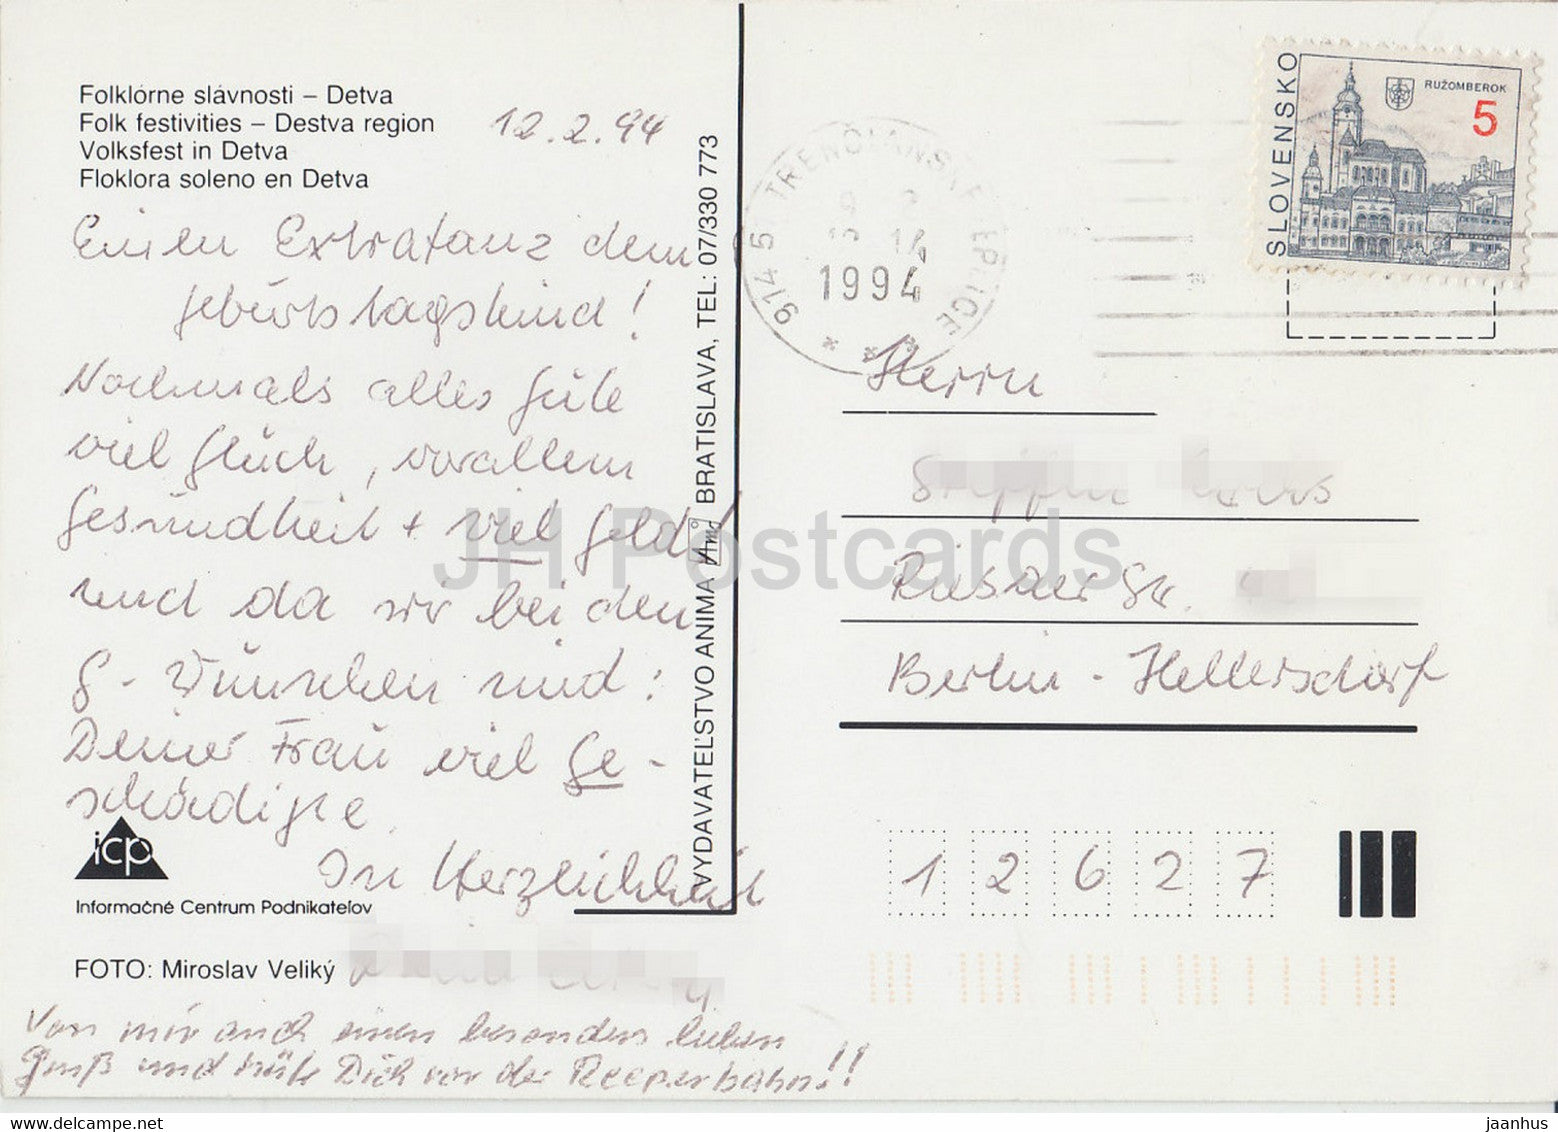 Folklórne slávnosti – Detva
Folk festivities – Destva region
Volksfest in Detva
Floklora soleno en Detva
12.2.94
Einen Extratanz dem
Geburtstagskind!
Nochmals alles Gute
viel Glück, vorallem
Gesundheit + viel Geld!
und da wir bei den
G-Wünschen sind:
Deiner Frau viel Ge-
schädigte.
In Herzlichkeit
icp
Informačné Centrum Podnikateľov
FOTO: Miroslav Veliký
Von mir auch einen besonders lieben
Gruß und hüte Dich vor der Reeperbahn!!
VYDAVATEĽSTVO ANIMA BRATISLAVA, TEL: 07/330 773
914 5 TRENČIANSKE TEPLICE
1994
SLOVENSKO
RUŽOMBEROK
5
Herrn
Berlin - Hellersdorf
12627
JH Postcards
delcampe.net
jaanhus